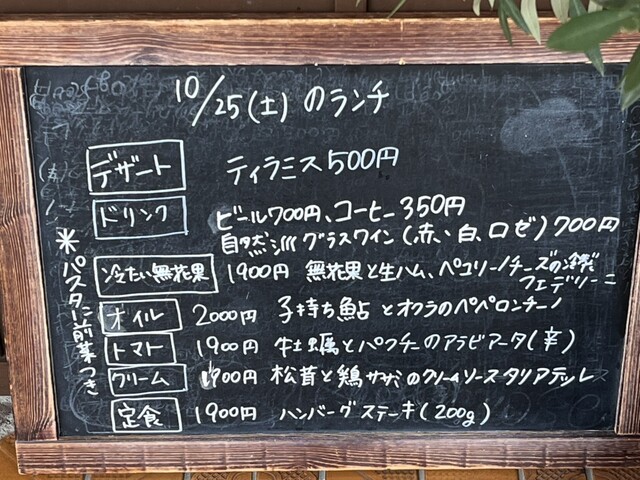 10/25(土)のランチ
デザート ティラミス500円
ドリンク ビール700円、コーヒー350円
自然派グラスワイン(赤、白、ロゼ)700円
冷たい無花果 1900円 無花果と生ハム、ペコリーノチーズの冷製
フェデリーニ
オイル 2000円 子持ち鮎とオクラのペペロンチーノ
トマト 1900円 牡蠣とパクチーのアラビアータ(辛)
クリーム 1900円 松茸と鶏ササミのクリームソースタリアテッレ
定食 1900円 ハンバーグステーキ(200g)
*パスタに前菜つき